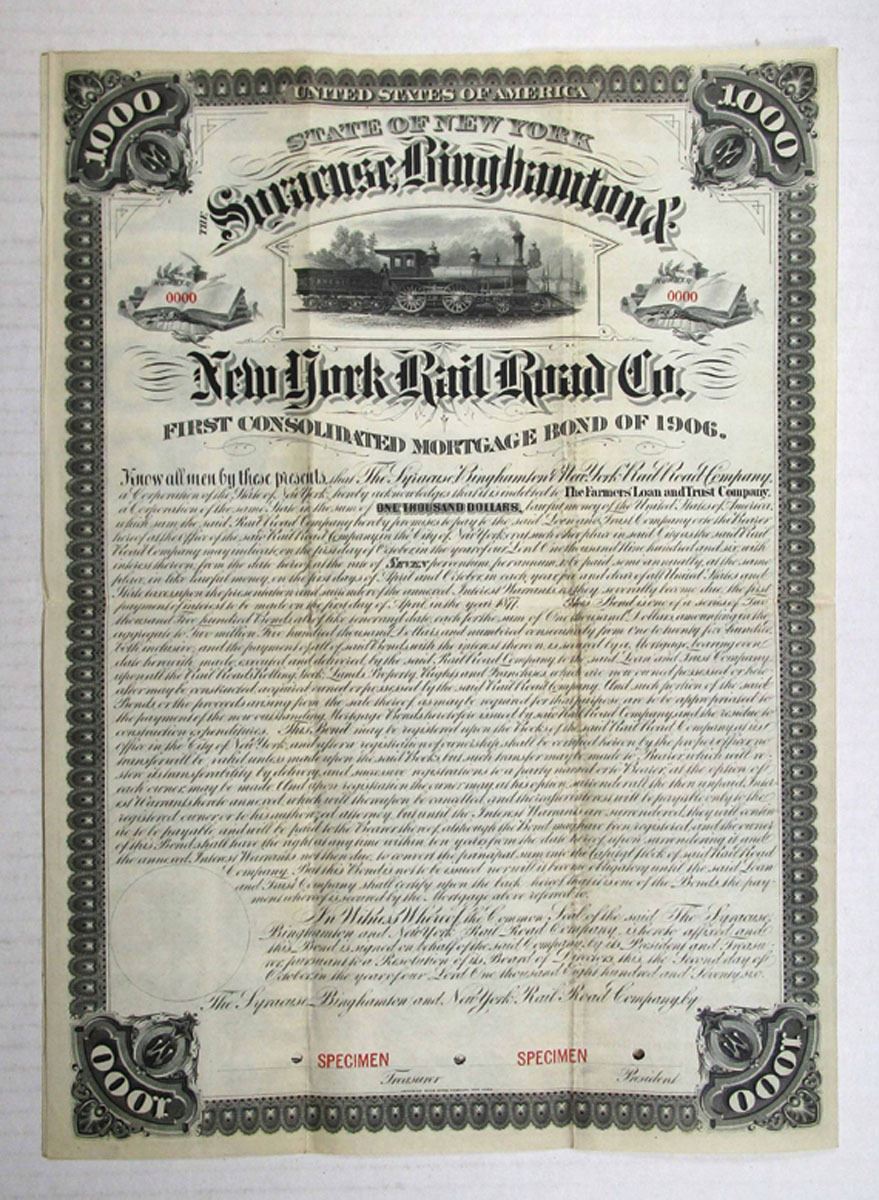 UNITED STATES OF AMERICA
1000
1000
STATE OF NEW YORK
THE Syracuse, Binghamton &
NUMBER
0000
NUMBER
0000
New York Rail Road Co.
FIRST CONSOLIDATED MORTGAGE BOND OF 1906.
Know all men by these presents, that The Syracuse Binghamton & New York Rail Road Company,
a Corporation of the State of New York, hereby acknowledges that it is indebted to The Farmers' Loan and Trust Company.
a Corporation of the same State in the sum of ONE THOUSAND DOLLARS, lawful money of the United States of America,
which sum the said Rail Road Company hereby promises to pay to the said Loan and Trust Company or to the Bearer
hereof at the Office of the said Rail Road Company in the City of New York or at such other place in said City as the said Rail
Road Company may indicate, on the first day of October, in the year of our Lord One thousand Nine hundred and six, with
interest thereon from the date hereof at the rate of SEVEN per centum per annum, to be paid semi annually, at the same
place, in like lawful money, on the first days of April and October in each year, free and clear of all United States and
State taxes upon the presentation and surrender of the annexed Interest Warrants as they severally become due, the first
payment of interest to be made on the first day of April, in the year 1877. This Bond is one of a series of Two
thousand Five hundred Bonds all of like tenor and date, each for the sum of One thousand Dollars, amounting in the
aggregate to Two million Five hundred thousand Dollars and numbered consecutively from One to twenty five hundred
both inclusive, and the payment of all of said Bonds with the interest thereon, is secured by a Mortgage bearing even
date herewith made, executed and delivered, by the said Rail Road Company to the said Loan and Trust Company
upon all the Rail Road, Rolling Stock, Lands, Property, Rights and Franchises, which are now owned possessed or here-
after may be constructed, acquired owned or possessed by the said Rail Road Company. And such portion of the said
Bonds or the proceeds arising from the sale thereof as may be required for that purpose are to be appropriated to
the payment of the now outstanding Mortgage Bonds heretofore issued by said Rail Road Company, and the residue to
construction expenditures. This Bond may be registered upon the Books of the said Rail Road Company at its
office in the City of New York, and after a registration of ownership shall be certified hereon by the proper officer, no
transfer will be valid unless made upon the said Books, but such transfer may be made to Bearer, which will re-
store its transferability by delivery, and successive registrations to a party named or to Bearer, at the option of
each owner, may be made. And upon registration the owner may at his option, surrender all the then unpaid Inter-
est Warrants hereto annexed, which will thereupon be cancelled, and thereafter interest will be payable only to the
registered owner or to his authorized attorney, but until the Interest Warrants are surrendered, they will contin-
ue to be payable and will be paid to the Bearer thereof, although the Bond may have been registered, and the owner
of this Bond shall have the right at any time within ten years from the date hereof upon surrendering it and
the annexed Interest Warrants not then due, to convert the principal sum into the Capital Stock of said Rail Road
Company. But this Bond is not to be issued nor will it become obligatory until the said Loan
and Trust Company shall certify upon the back hereof that it is one of the Bonds the pay-
ment whereof is secured by the Mortgage above referred to.
In Witness Whereof, the Common Seal of the said The Syracuse,
Binghamton and New York Rail Road Company, is hereto affixed and
this Bond is signed on behalf of the said Company, by its President and Treasu-
rer, pursuant to a Resolution of its Board of Directors this the Second day of
October, in the year of our Lord One thousand Eight hundred and Seventy six.
The Syracuse, Binghamton and New York Rail Road Company, by
SPECIMEN
SPECIMEN
Treasurer
President
1000
1000